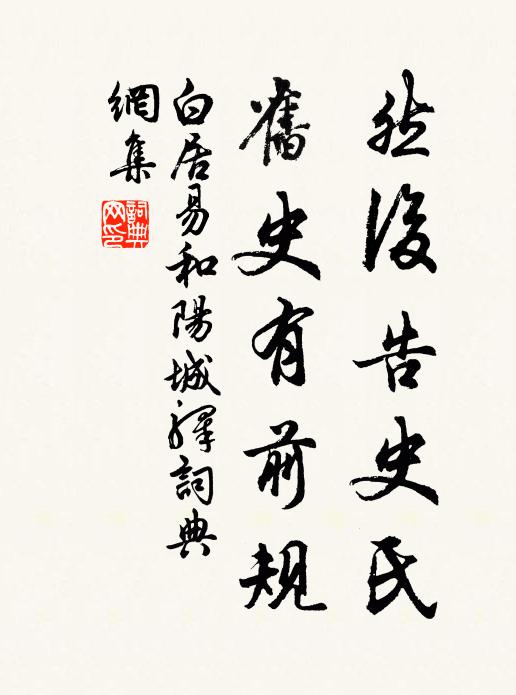 然後告史氏
舊史有前規
白居易和陽城驛詞典
網集
詞典
网印